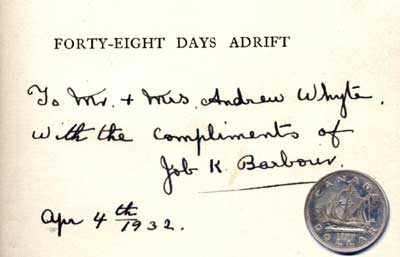 FORTY-EIGHT DAYS ADRIFT
To Mr. + Mrs. Andrew Whyte.
With the compliments of
Job K. Barbour.
Apr 4th 1932.
CANADA
DOLLAR